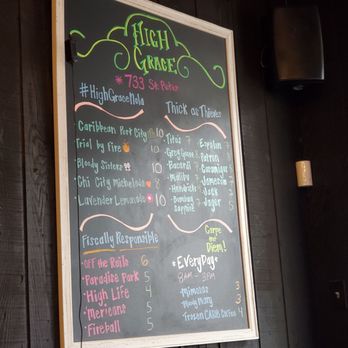 HIGH
GRACE
733 St. Peter
#HighGraceNola
Caribbean Port City 10
Trial by Fire 10
Bloody Sisters 10
Chi City Michelada 8
Lavender Lemonade 10
Thick as Thieves
Tito's 7
Grey Goose
Bacardi
Malibu
Hendricks
Bombay
Sapphire 7
Espolon 7
Patron
Casamigos
Jameson
Jack
Jager 5
Fiscally Responsible
Off the Rails 6
Paradise Park 5
High Life 4
Mexicans 5
Fireball 5
Carpe
Diem!
*EVERYDAY*
8AM - 3PM
Mimosas 3
Bloody Mary 3
Frozen Coffee 4